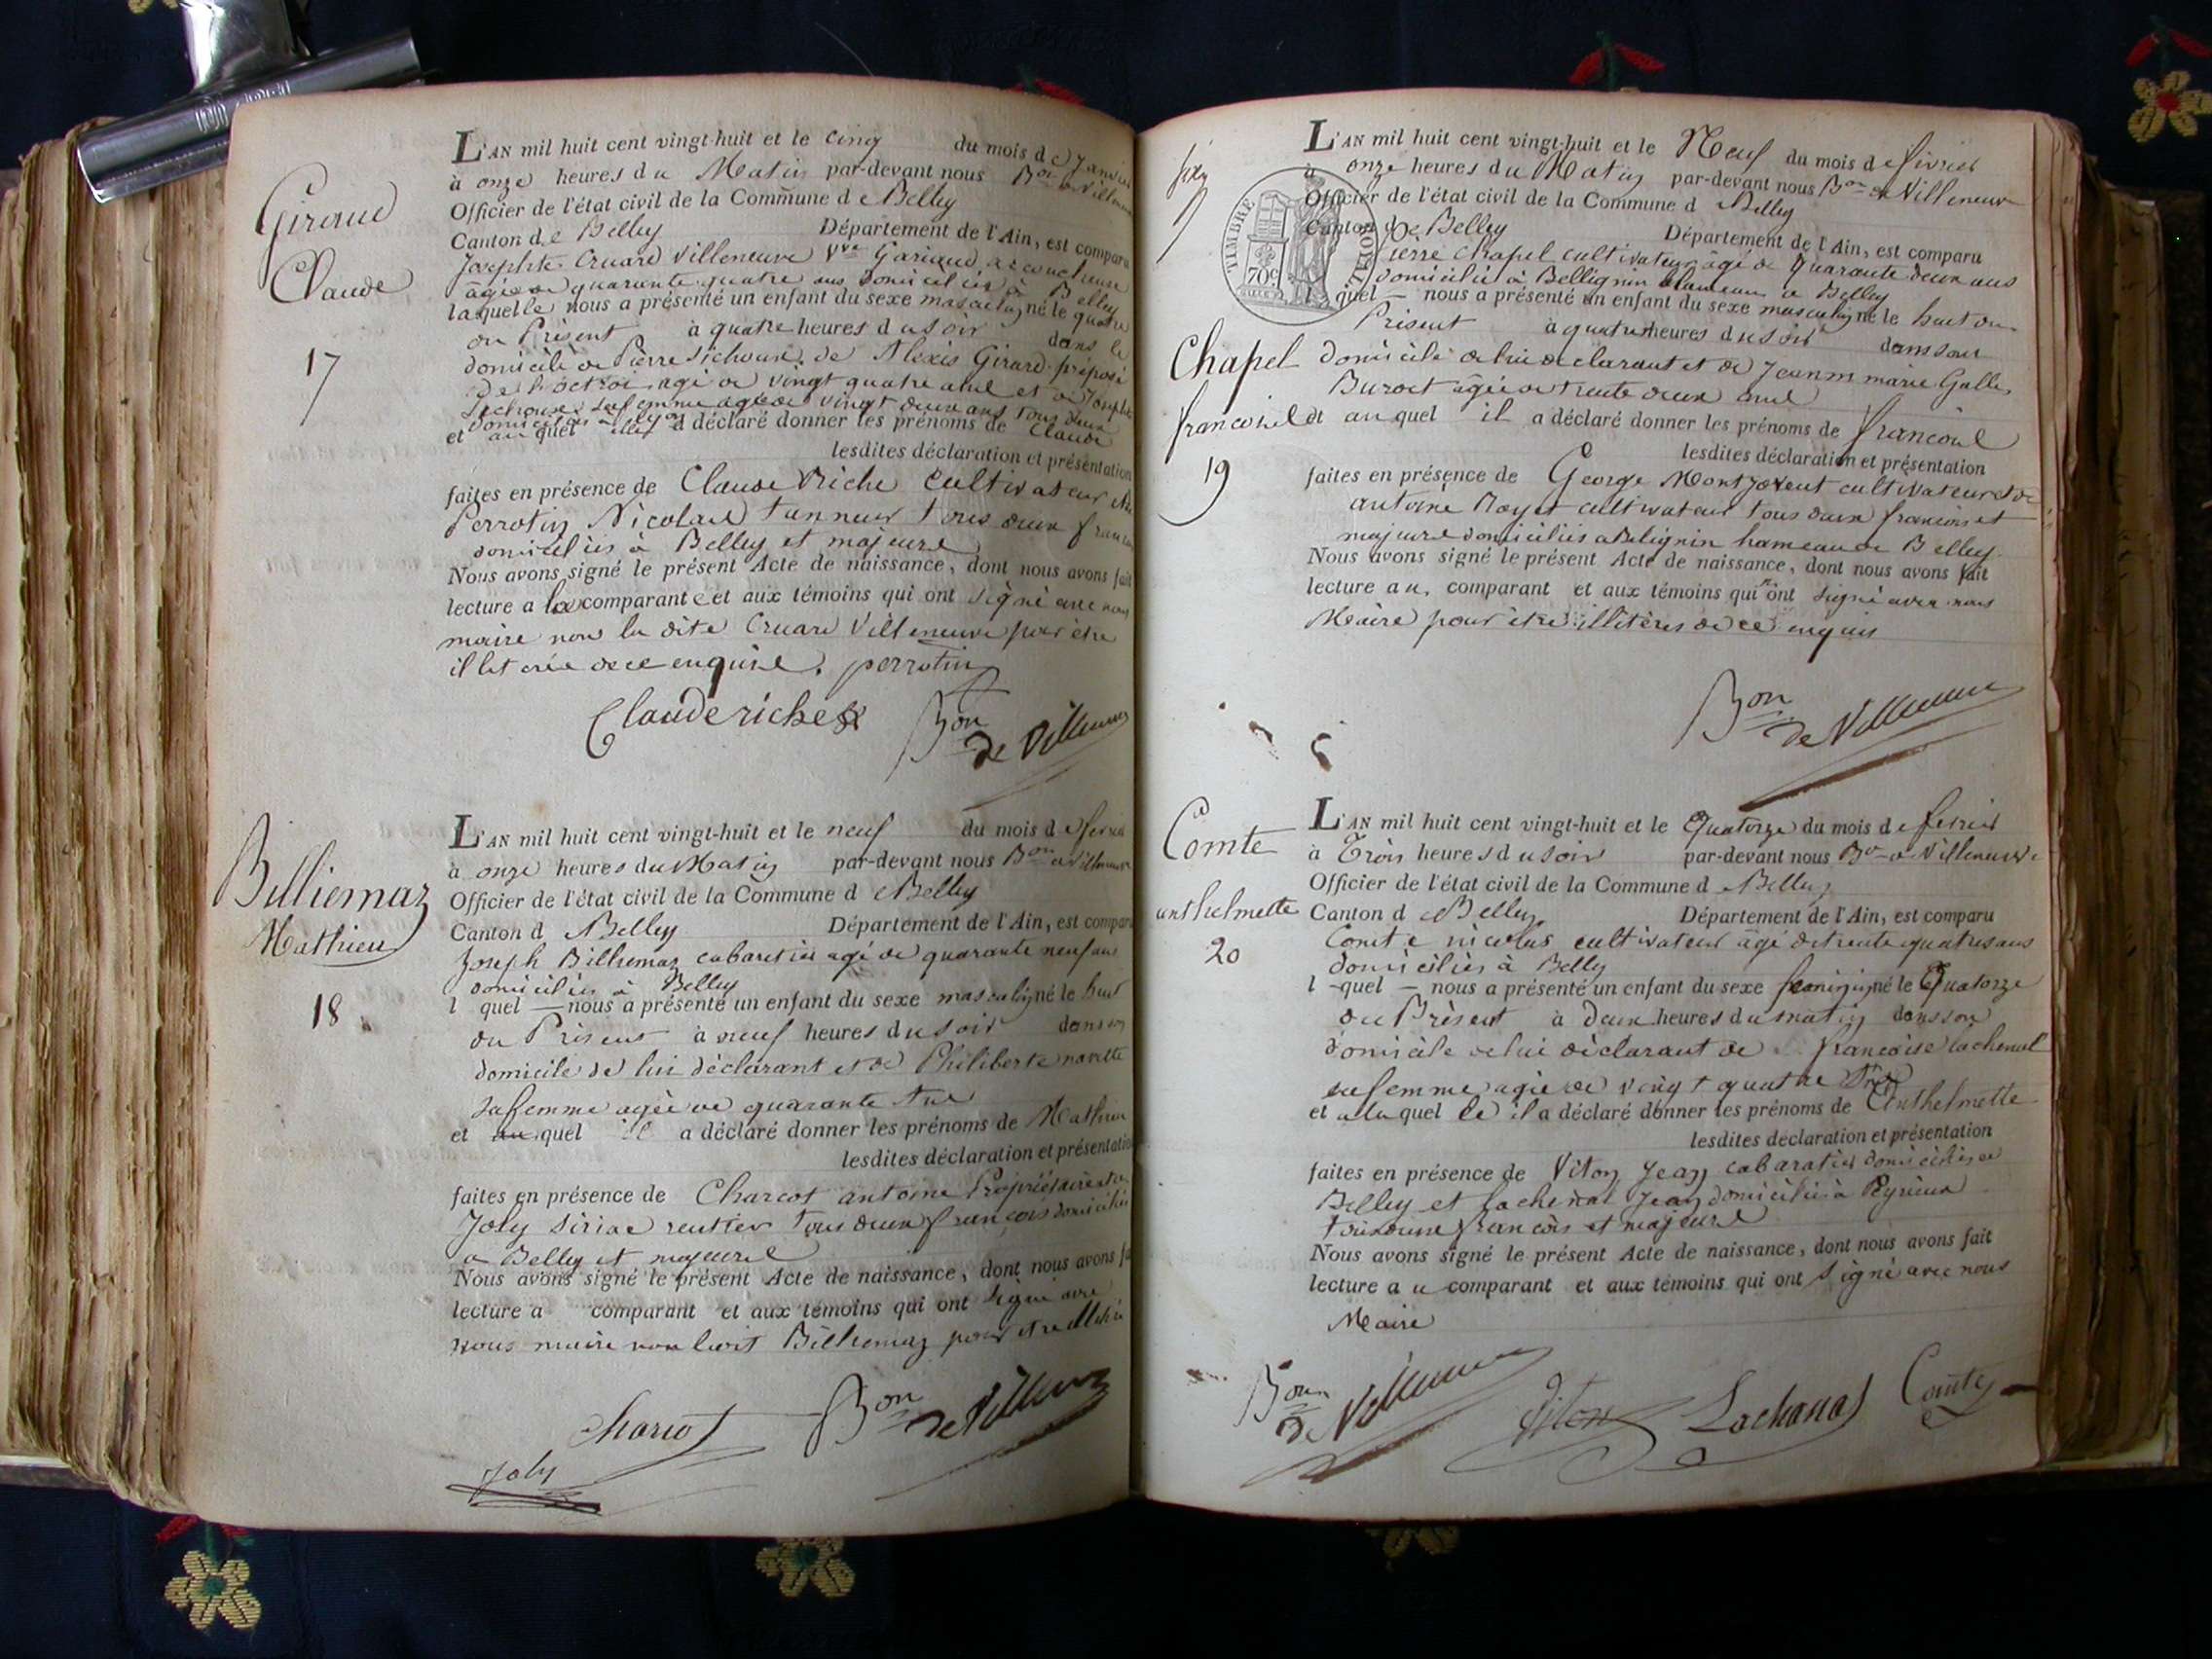 Giraud
Claude
17
L'AN mil huit cent vingt-huit et le cinq du mois de Janvier
à onze heures du Matin par-devant nous Bon de Villeneuve
Officier de l'état civil de la Commune de Belley
Canton de Belley Département de l'Ain, est comparu
Josephte Cruard Villeneuve Vve accoucheuse
âgée de quarante quatre ans domiciliée à Belley
laquelle nous a présenté un enfant du sexe masculin né le quatre
du Présent à quatre heures du soir dans le
domicile de Pierre Sichoux, de Alexis Girard préposé
de l'octroi agé de vingt quatre ans et de Josephte
Sichoux sa femme agée de vingt deux ans tous deux
domiciliés
et au quel a déclaré donner les prénoms de Claude
lesdites déclaration et présentation
faites en présence de Claude Riche cultivateur et de
Perrotin Nicolas tanneur tous deux francois
domiciliés à Belley et majeurs
Nous avons signé le présent Acte de naissance, dont nous avons fait
lecture a la comparante et aux témoins qui ont signé avec nous
maire non la dite Cruard Villeneuve pour être
illiterée de ce enquise. perrotin
Clauderiche Bon de Villeneuve
Billiemaz
Mathieu
18
L'AN mil huit cent vingt-huit et le neuf du mois de fevrier
à onze heures du Matin par-devant nous Bon de Villeneuve
Officier de l'état civil de la Commune de Belley
Canton de Belley Département de l'Ain, est comparu
Joseph Billiemaz cabaretier agé de quarante neuf ans
domicilié à Belley
l quel — nous a présenté un enfant du sexe masculin né le huit
du Présent à neuf heures du soir dans son
domicile de lui déclarant et de Philiberte navette
sa femme agée de quarante
et au quel il a déclaré donner les prénoms de Mathieu
lesdites déclaration et présentation
faites en présence de Charcot antoine Propriétaire et de
Joly Siriac rentier tous deux françois domiciliés
a Belley et majeurs
Nous avons signé le présent Acte de naissance, dont nous avons fait
lecture a comparant et aux témoins qui ont signé avec
nous maire non ledit Billiemaz pour etre illitéré
Charcot Bon de Villeneuve
Joly
TIMBRE ROYAL
70c
L'AN mil huit cent vingt-huit et le Neuf du mois de fevrier
à onze heures du Matin par-devant nous Bon de Villeneuve
Officier de l'état civil de la Commune d Belley
Canton de Belley Département de l'Ain, est comparu
Pierre Chapel cultivateur âgé de quarante deux ans
domicilié à Bellignin hameau de Belley
l quel — nous a présenté un enfant du sexe masculin né le huit du
Présent à quatre heures du soir dans son
Chapel
francois
19
domicile de lui declarant et de Jeanne marie Gallet
Buroct âgée de trente deux ans
et au quel il a déclaré donner les prénoms de francois
lesdites déclaration et présentation
faites en présence de George Montjovent cultivateur et de
antoine Royet cultivateur tous deux francois et
majeurs domiciliés a Belignin hameau de Belley.
Nous avons signé le présent Acte de naissance, dont nous avons fait
lecture au comparant et aux témoins qui n'ont signé avec nous
Maire pour être illitérés de ce enquis
Bon de Villeneuve
Comte
anthelmette
20
L'AN mil huit cent vingt-huit et le Quatorze du mois de fevrier
à Trois heures du soir par-devant nous Bon de Villeneuve
Officier de l'état civil de la Commune d Belley
Canton d Belley. Département de l'Ain, est comparu
Comte nicolas cultivateur âgé de trente quatre ans
domicilié à Belley
l quel — nous a présenté un enfant du sexe feminin né le Quatorze
du Présent à Deux heures du matin dans son
domicile de lui déclarant de françoise lachenal
sa femme agée de vingt quatre ans
et a la quel le il a déclaré donner les prénoms de Anthelmette
lesdites déclaration et présentation
faites en présence de Viton Jean cabaratier domicilié a
Belley et lachenal Jean domicilié à Peyrieux
tous deux francois et majeurs
Nous avons signé le présent Acte de naissance, dont nous avons fait
lecture a u comparant et aux témoins qui ont signé avec nous
Maire
Bon de Villeneuve Viton Lachanal Comte